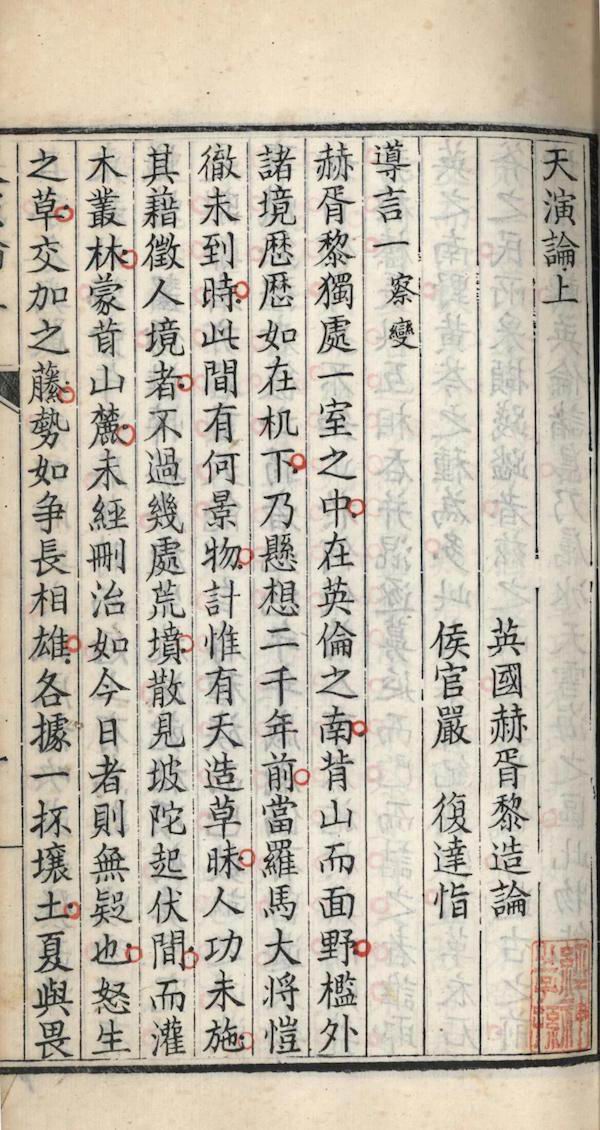 天演論上
英國赫胥黎造論
侯官嚴復達恉
導言一 察變
赫胥黎獨處一室之中在英倫之南背山而面野檻外
諸境歷歷如在机下乃懸想二千年前當羅馬大將愷
徹未到時此間有何景物計惟有天造草昧人功未施
其藉徵人境者不過幾處荒墳散見坡陀起伏間而灌
木叢林蒙茸山麓未經刪治如今日者則無疑也怒生
之草交加之藤勢如爭長相雄各據一抔壤土夏與畏